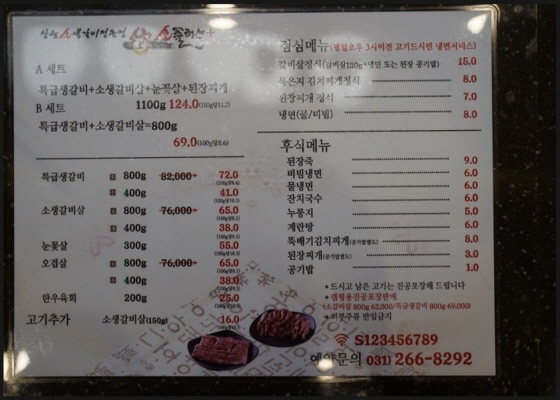 소플러스+
A 세트
특급생갈비+소생갈비살+눈꽃살+된장찌개
1100g 124.0(100g당11.2)
B 세트
특급생갈비+소생갈비살=800g
69.0(100g당8.6)
특급생갈비 800g 82,000→ 72.0
400g 41.0
소생갈비살 800g 76,000→ 65.0
400g 38.0
눈꽃살 300g 55.0
오겹살 800g 76,000→ 65.0
400g 38.0
한우육회 200g 25.0
고기추가 소생갈비살(150g) 16.0
점심메뉴(평일오후 3시이전 고기드시면 냉면서비스)
갈비살정식(갈비살120g+냉면 또는 된장 공기밥) 15.0
묵은지 김치찌개정식 8.0
된장찌개 정식 7.0
냉면(물/비빔) 8.0
후식메뉴
된장죽 9.0
비빔냉면 6.0
물냉면 6.0
잔치국수 6.0
누룽지 5.0
계란탕 6.0
뚝배기김치찌개(공기밥별도) 8.0
된장찌개(공기밥별도) 3.0
공기밥 1.0
• 드시고 남은 고기는 진공포장해 드립니다
• 캠핑용진공포장판매
(소갈비살 800g 62,000/특급생갈비 800g 69,000)
• 외부주류 반입금지
S123456789
예약문의 031) 266-8292